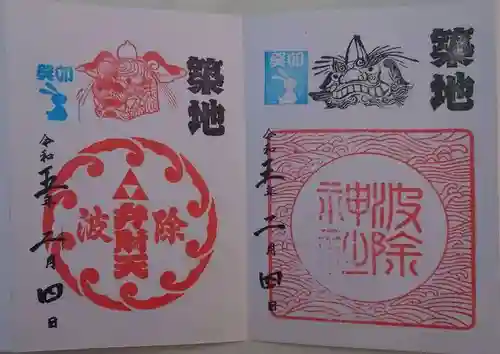 築地
癸卯
波除神社
令和五年二月四日
築地
癸卯
波除
弁財天
令和五年二月四日